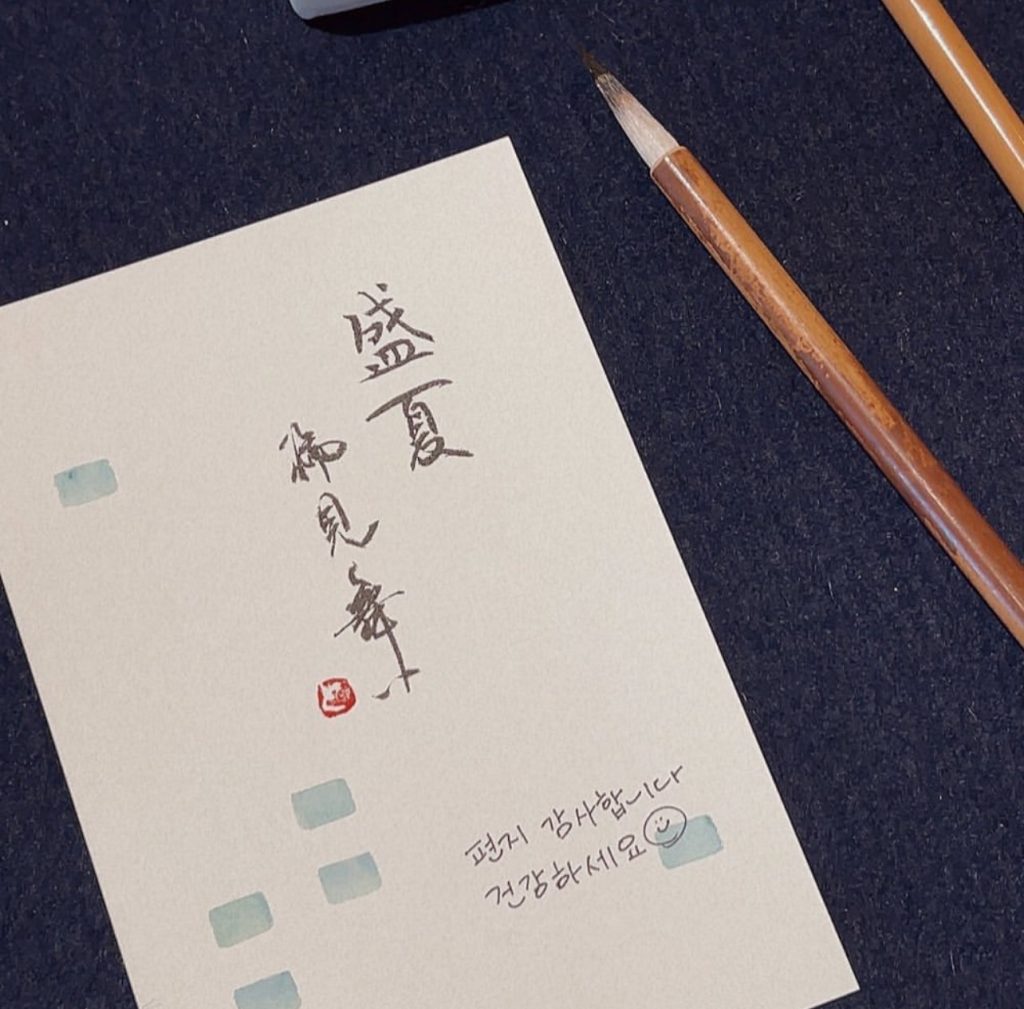 盛夏
御見舞
편지 감사합니다
건강하세요